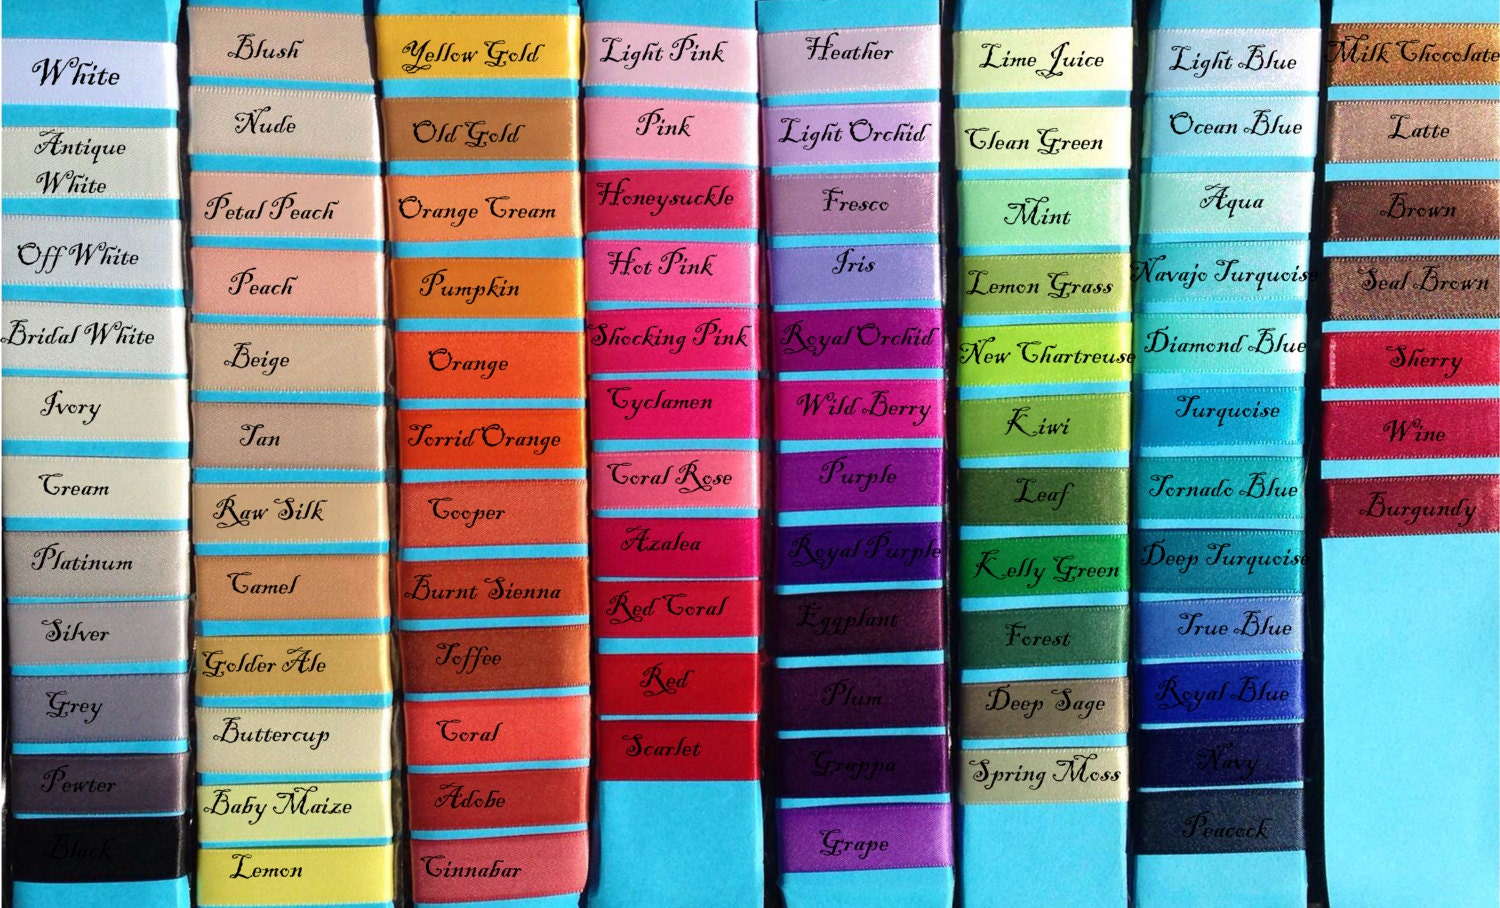 White
Antique
White
Off White
Bridal White
Ivory
Cream
Platinum
Silver
Grey
Pewter
Black
Blush
Nude
Petal Peach
Peach
Beige
Tan
Raw Silk
Camel
Golder Ale
Buttercup
Baby Maize
Lemon
Yellow Gold
Old Gold
Orange Cream
Pumpkin
Orange
Torrid Orange
Cooper
Burnt Sienna
Toffee
Coral
Adobe
Cinnabar
Light Pink
Pink
Honeysuckle
Hot Pink
Shocking Pink
Cyclamen
Coral Rose
Azalea
Red Coral
Red
Scarlet
Heather
Light Orchid
Fresco
Iris
Royal Orchid
Wild Berry
Purple
Royal Purple
Eggplant
Plum
Grappa
Grape
Lime Juice
Clean Green
Mint
Lemon Grass
New Chartreuse
Kiwi
Leaf
Kelly Green
Forest
Deep Sage
Spring Moss
Light Blue
Ocean Blue
Aqua
Navajo Turquoise
Diamond Blue
Turquoise
Tornado Blue
Deep Turquoise
True Blue
Royal Blue
Navy
Peacock
Milk Chocolate
Latte
Brown
Seal Brown
Sherry
Wine
Burgundy